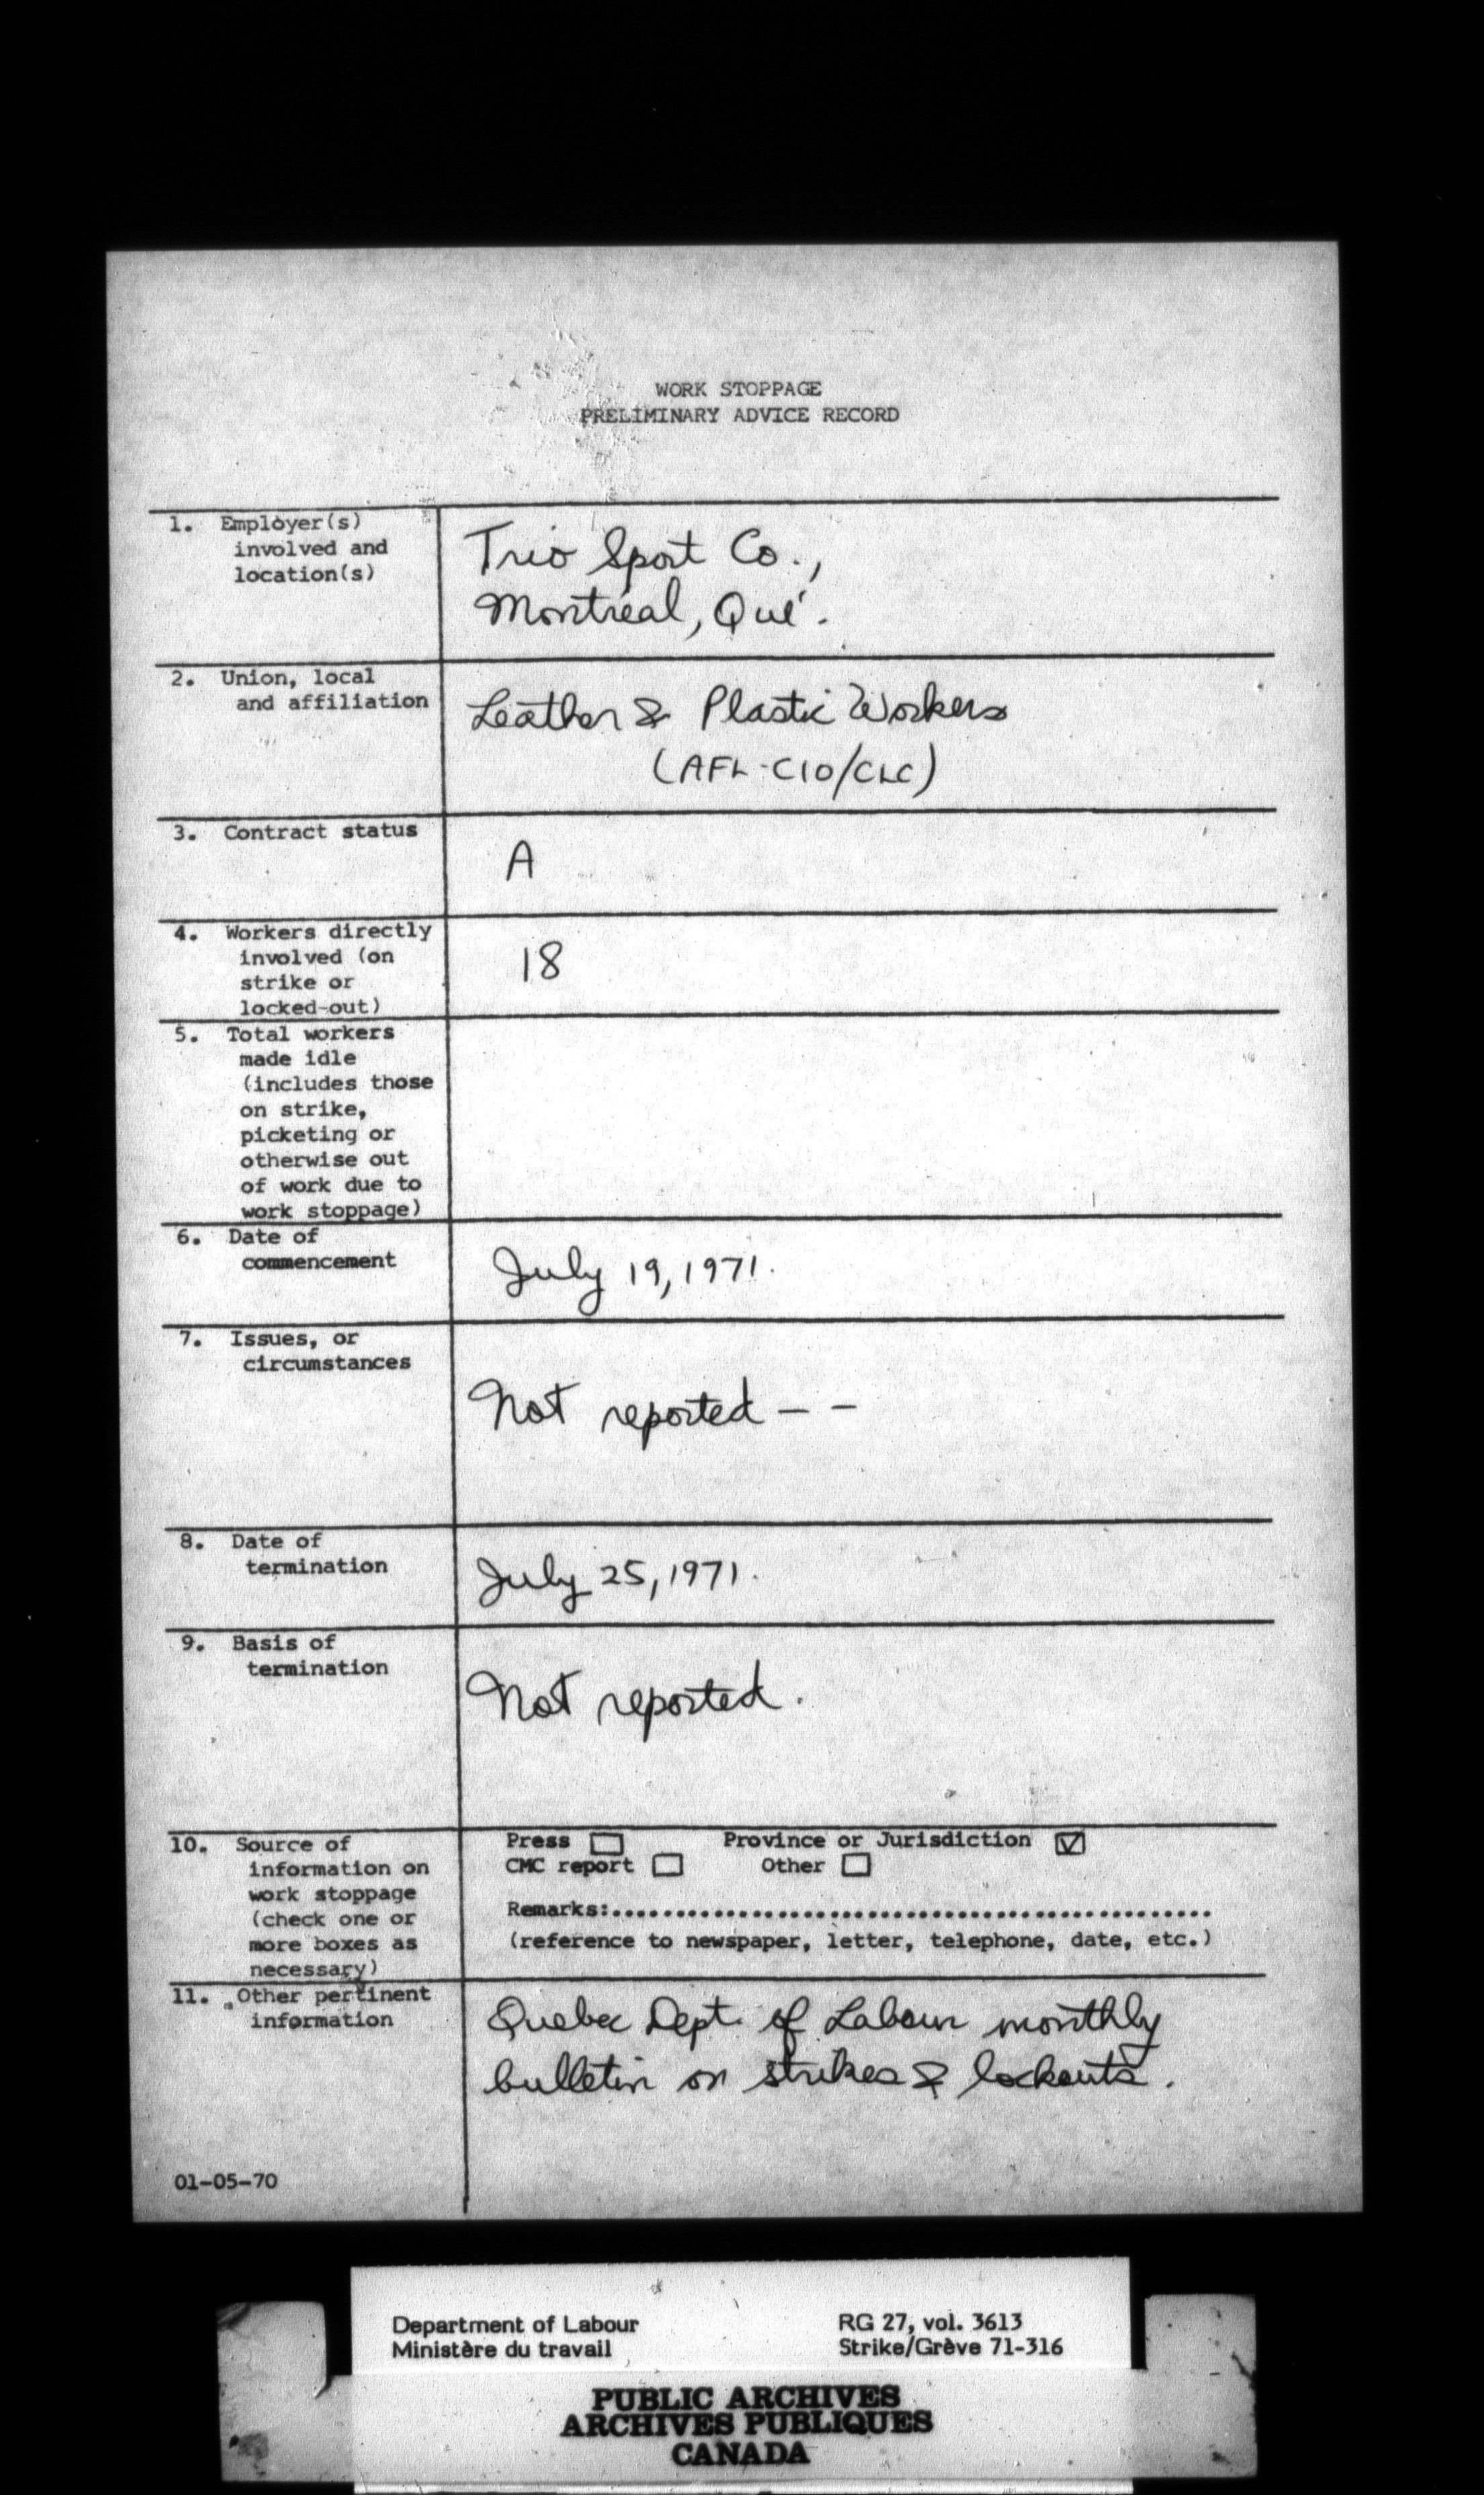 WORK STOPPAGE
PRELIMINARY ADVICE RECORD
1. Employer(s)
involved and
location(s)
Trio Sport Co.,
Montréal, Qué.
2. Union, local
and affiliation
Leather & Plastic Workers
(AFL-CIO/CLC)
3. Contract status
A
4. Workers directly
involved (on
strike or
locked-out)
18
5. Total workers
made idle
(includes those
on strike,
picketing or
otherwise out
of work due to
work stoppage)
6. Date of
commencement
July 19, 1971.
7. Issues, or
circumstances
Not reported - -
8. Date of
termination
July 25, 1971.
9. Basis of
termination
Not reported.
10. Source of
information on
work stoppage
(check one or
more boxes as
necessary)
Press ☐ Province or Jurisdiction ☑
CMC report ☐ Other ☐
Remarks:...............................................
(reference to newspaper, letter, telephone, date, etc.)
11. Other pertinent
information
Quebec Dept. of Labour monthly
bulletin on strikes & lockouts.
01-05-70
Department of Labour
Ministère du travail
RG 27, vol. 3613
Strike/Grève 71-316
PUBLIC ARCHIVES
ARCHIVES PUBLIQUES
CANADA